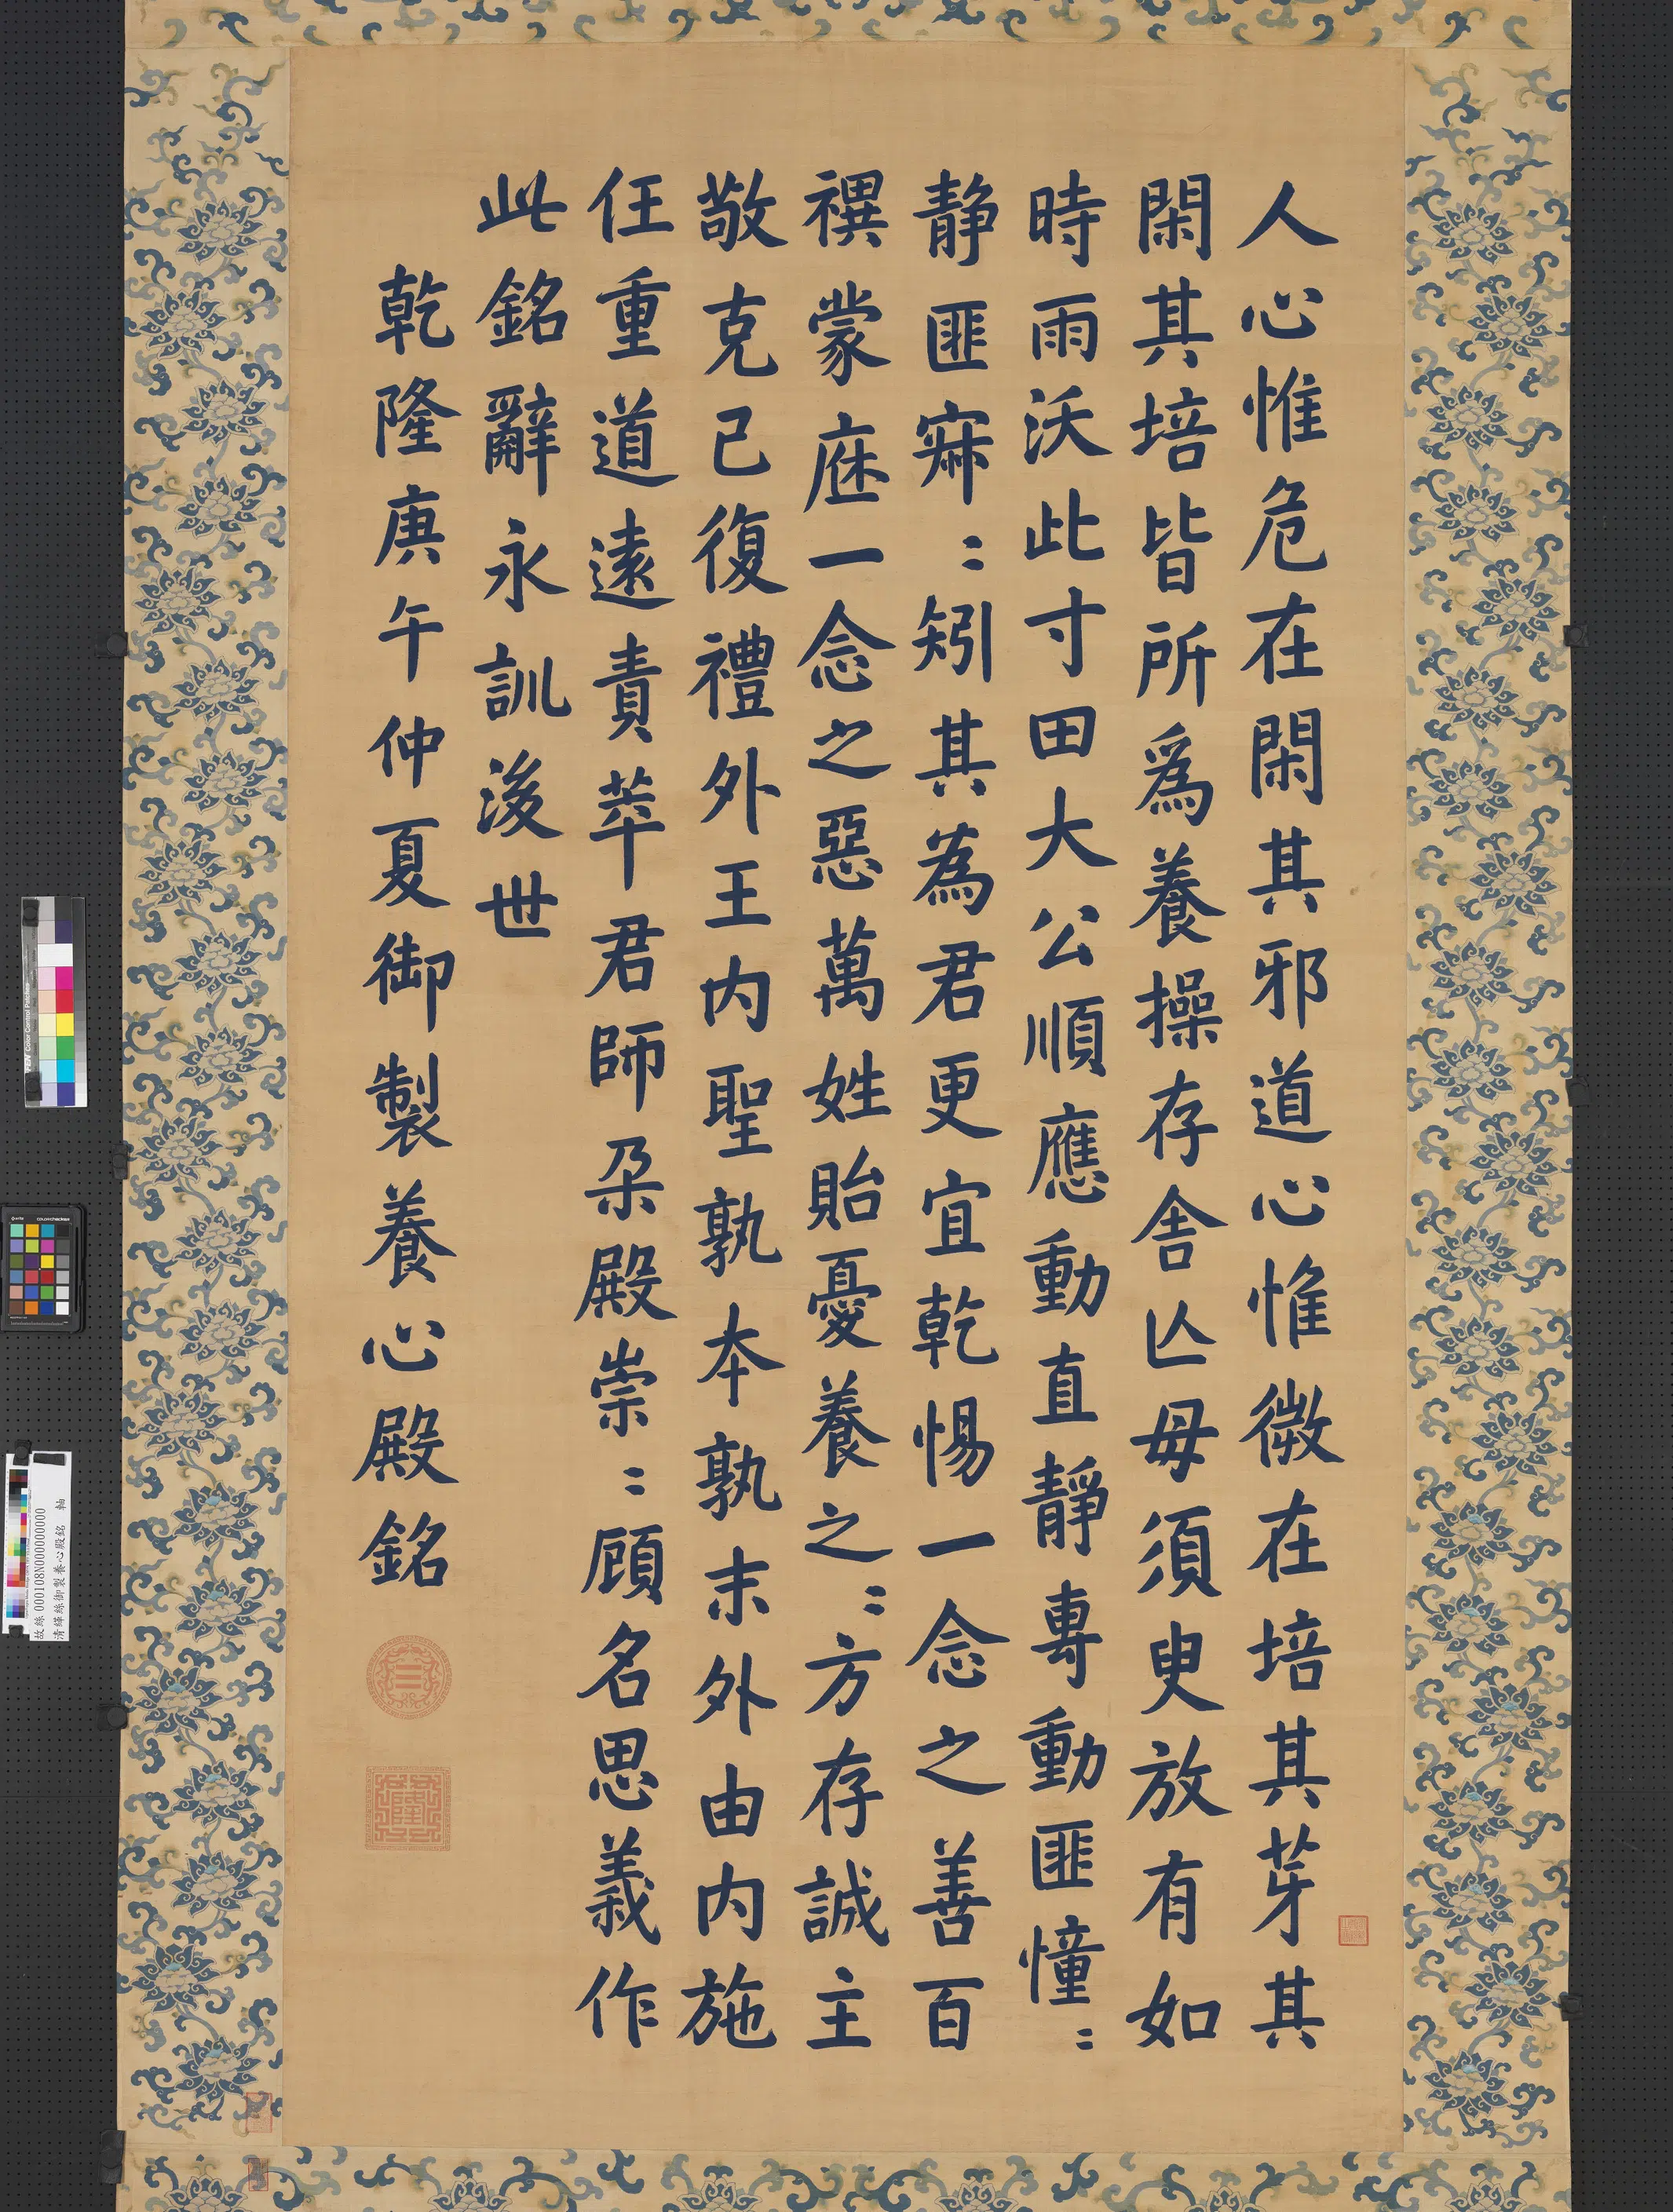 人心惟危在閑其邪道心惟微在培其芽其
閑其培皆所爲養操存舍亾毋須臾放有如
時雨沃此寸田大公順應動直靜專動匪憧〻
静匪寂〻矧其為君更宜乾惕一念之善百
禩蒙庥一念之惡萬姓貽憂養之〻方存誠主
敬克己復禮外王内聖孰本孰末外由内施
任重道遠責萃君師朶殿崇〻顧名思義作
此銘辭永訓後世
乾隆庚午仲夏御製養心殿銘
乾
隆
故絲000108N000000000
清緙絲御製養心殿銘 軸